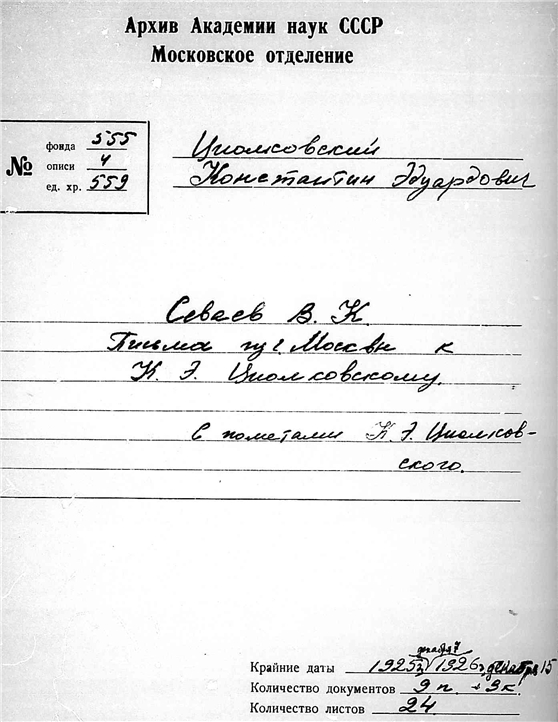 Архив Академии наук СССР
Московское отделение
№
фонда 555
описи 4
ед. хр. 559
Циолковский
Константин Эдуардович
Севаев В. К.
Письма из г. Москвы к
К. Э. Циолковскому.
С пометами К. Э. Циолков-
ского.
декабря 7
Крайние даты 1925г, 1926г декабря 15
Количество документов 9 п. + 9 к.
Количество листов 24